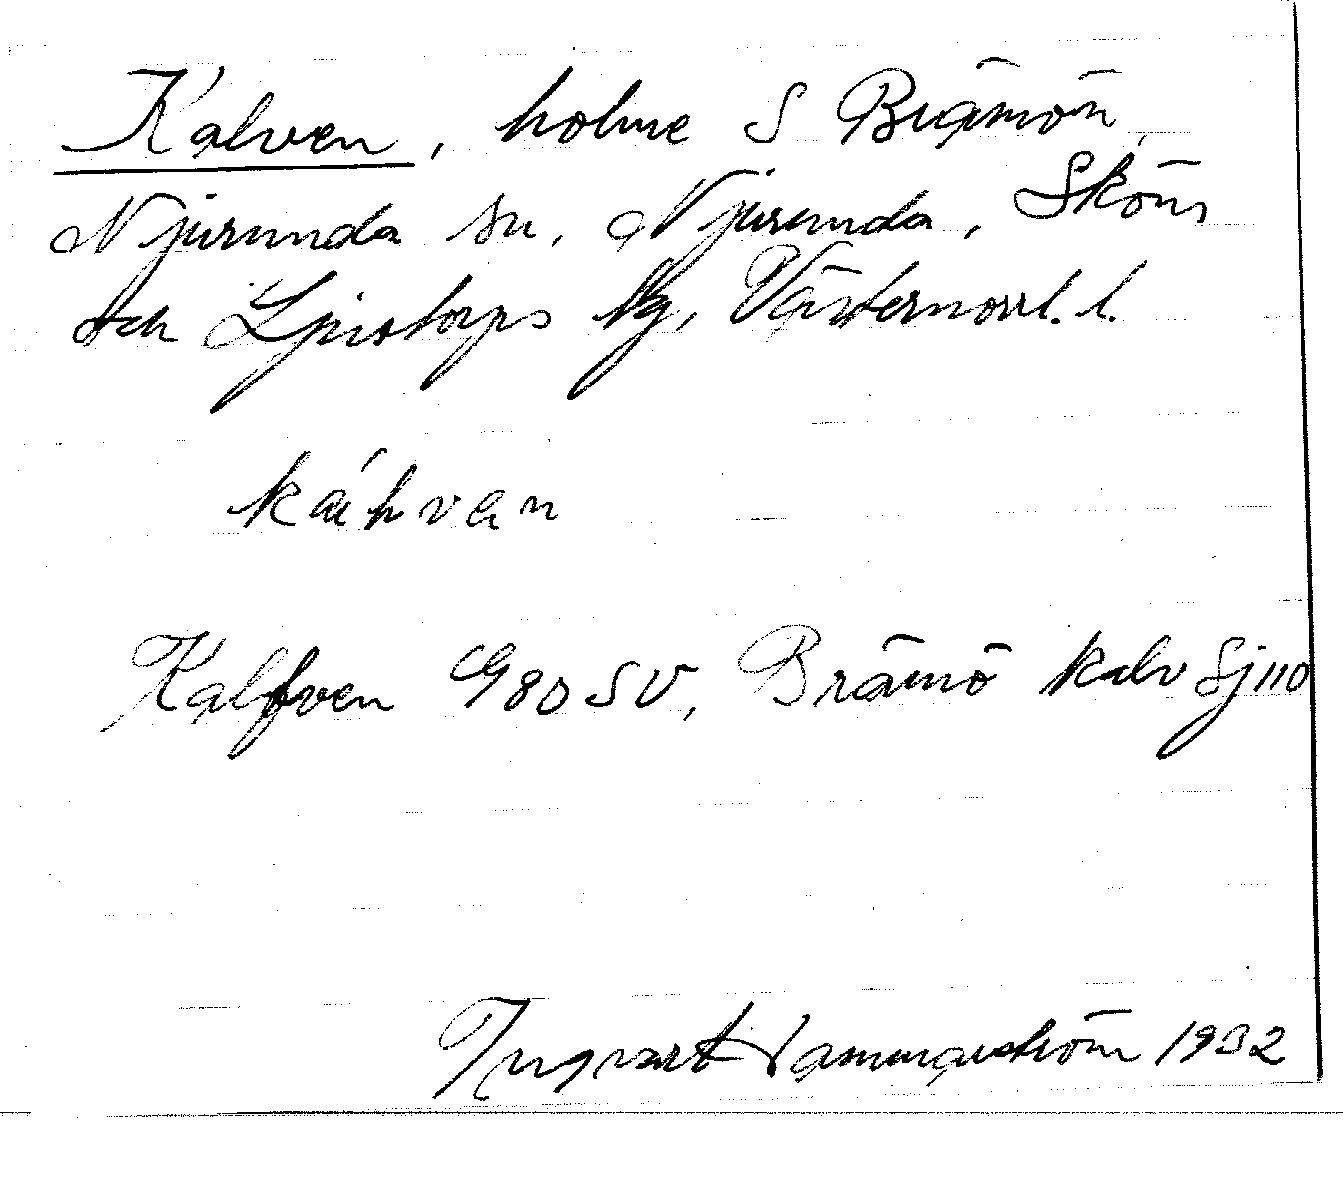 Kalven, holme S Brämön,
Njurunda sn, Njurunda, Sköns
och Ljustorps tg, Västernorrl. l.
káhvan
Kalfven G80SV, Brämö kalv Sj110
Ingvart Hammarström 1932